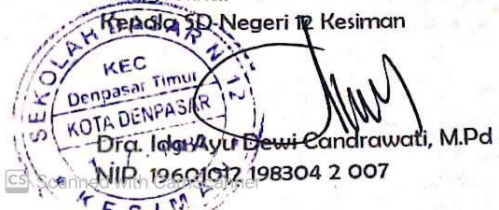 Kepala SD Negeri 12 Kesiman
SEKOLAH DASAR N 12
KEC
Denpasar Timur
KOTA DENPASAR
KESIMAN
Dra. Ida Ayu Dewi Candrawati, M.Pd
NIP. 19601012 198304 2 007
CS Scanned with CamScanner